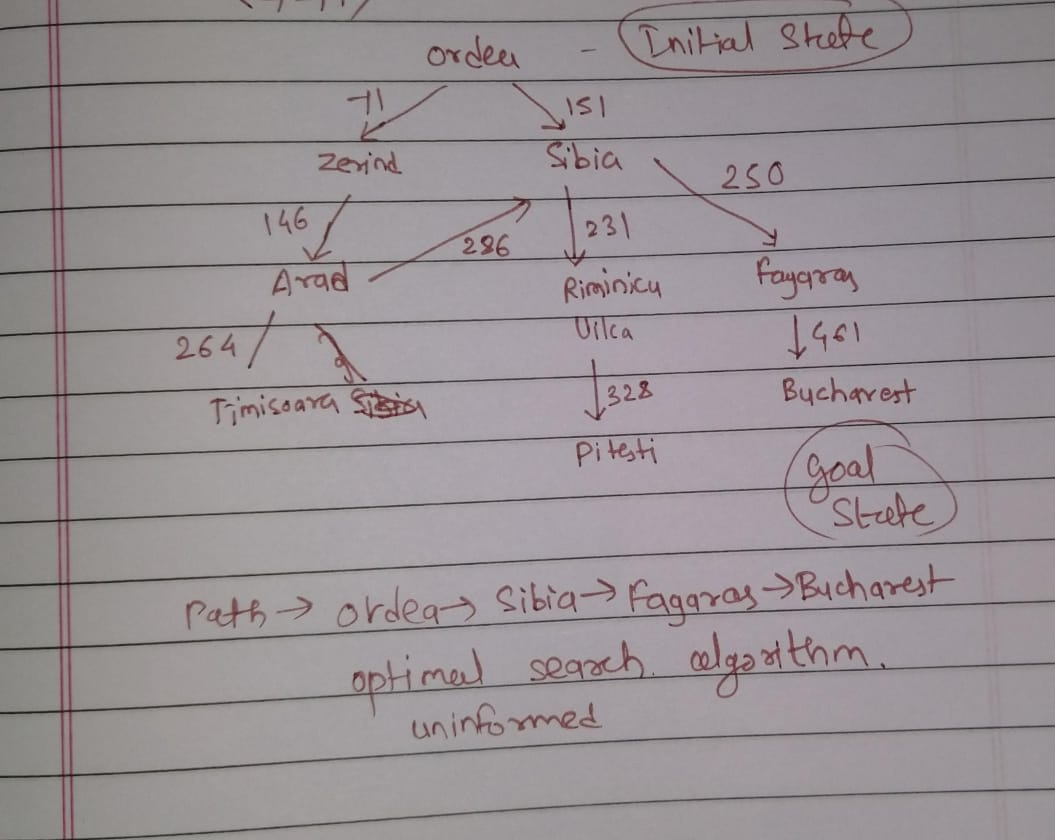 ordea - Initial State
71
151
Zerind
Sibia
250
146
286
231
Arad
Riminicu
Vilca
Fagaras
264
461
Timisoara
328
Bucharest
Pitesti
Goal
State
Path → ordea → Sibia → Fagaras → Bucharest
optimal search algorithm.
uninformed